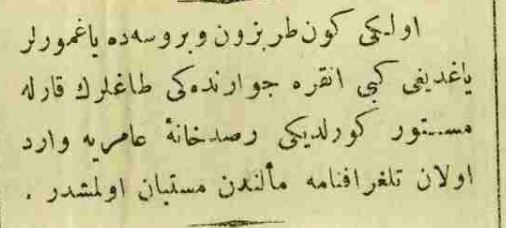 اولكی كون طربزون و بروسه‌ده یاغمورلر
یاغدیغی كبی انقره جوارنده‌كی طاغلرك قارله
مستور كورلدیكی رصدخانهٔ عامریه وارد
اولان تلغرافنامه مألندن مستبان اولمشدر .